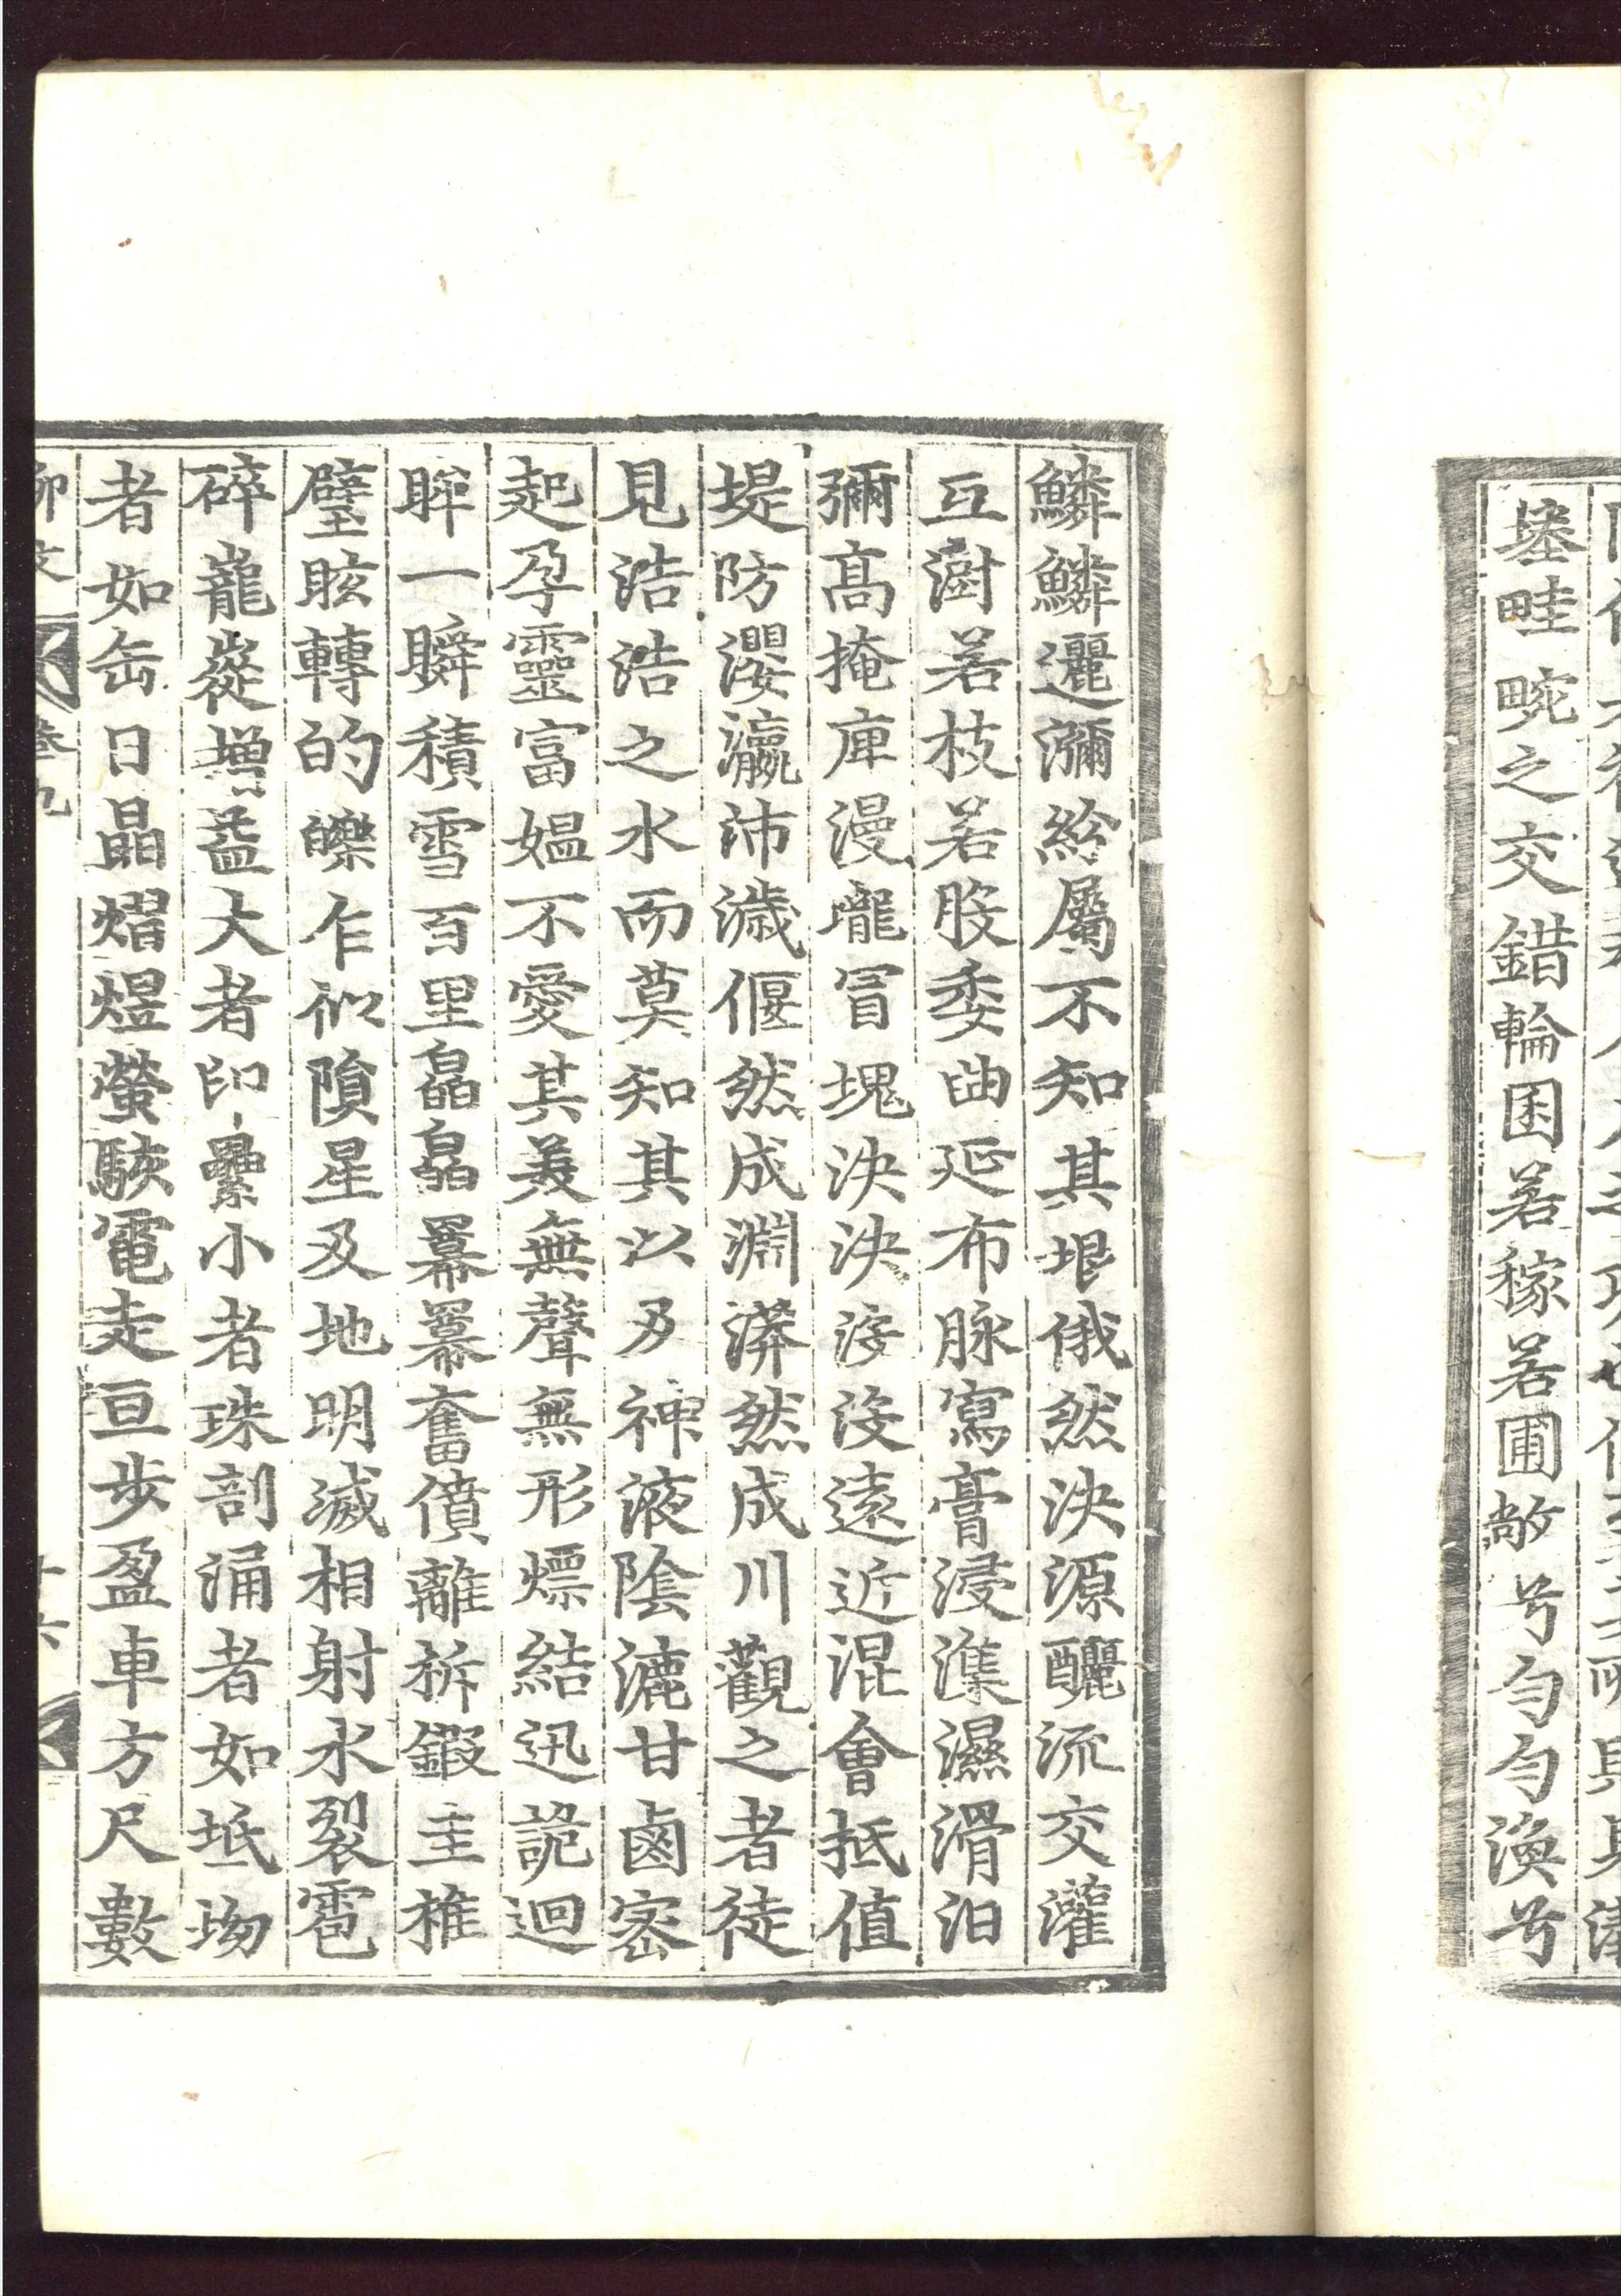 塍畦畹之交錯輪囷若稼若圃敞兮勻勻渙兮
鱗鱗邐瀰紛屬不知其垠俄然決源釃流交灌
互澍若枝若股委曲延布脉寫膏浸潗濕滑汩
彌高掩庳漫壠冒塊決決沒沒遠近混會抵值
堤防瀴瀛沛濊偃然成淵漭然成川觀之者徒
見浩浩之水而莫知其以及神液陰漉甘鹵密
起孕靈富媼不愛其羙無聲無形熛結迅詭迴
眸一瞬積雪百里皛皛羃羃奮僨離析鍛圭椎
璧眩轉的皪乍似隕星及地明滅相射氷裂雹
碎巃嵷增益大者印纍小者珠剖涌者如坻坳
者如缶日晶熠煜螢駭電走亘步盈車方尺數
柳文 卷九 十六